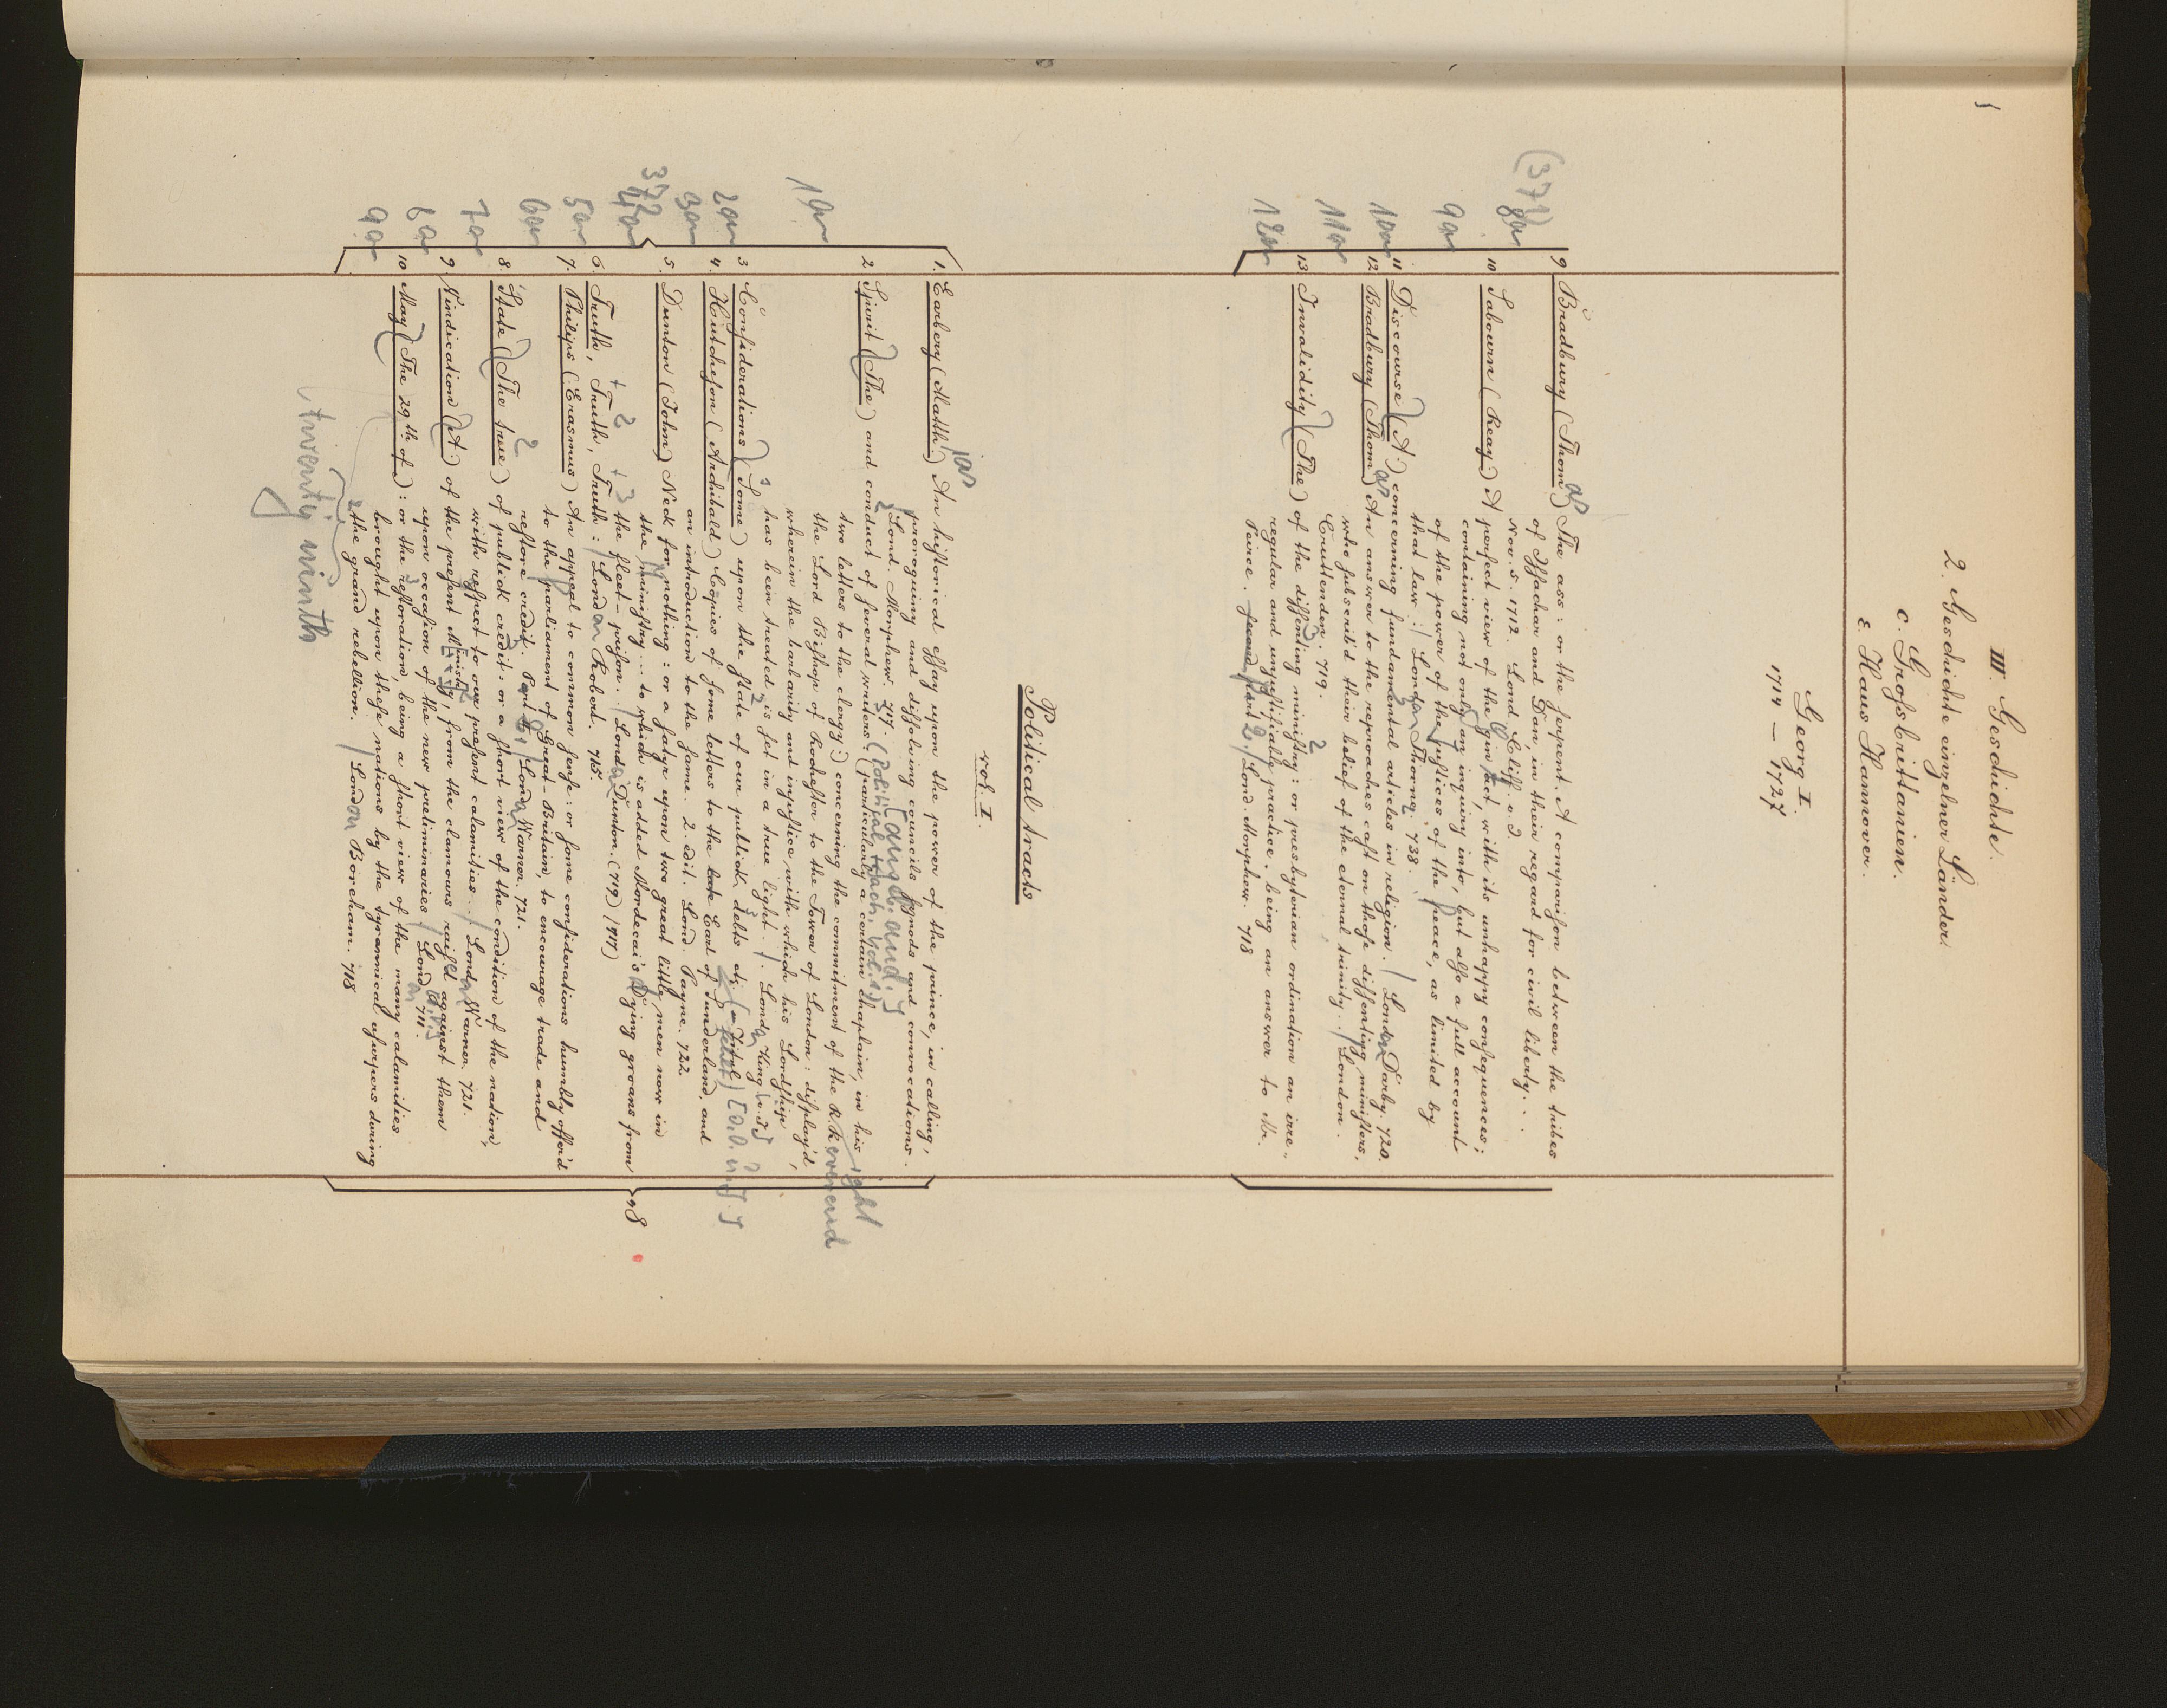 III. Geschichte.
2. Geschichte einzelner Länder.
c. Großbrittanien.
ε. Haus Hannover.
Georg I.
1714 — 1727
(371)
8an
9 Bradbury (Thom.) The ass: or the serpent. A comparison between the tribes
of Issachar and Dan, in their regard for civil liberty...
Nov. 5. 1712. Lond. Cliff. o. J.
9an
10 Sabourn (Reay) A perfect view of the gin act, with its unhappy consequences;
containing not only an inquiry into, but also a full account
of the power of the justices of the peace, as limited by
that law:/ London Thomas 738.
10an
11 Discourse (A) concerning fundamental articles in religion. / London Darby. 720.
11an
12 Bradbury (Thom) An answer to the reproaches cast on those dissenting ministers,
who subscrib'd their belief of the eternal trinity.. / London.
Cruttenden. 719.
12an
13 Invalidity (The) of the dissenting ministry: or presbyterian ordination an irre-
regular and unjustifiable practice, being an answer to Mr.
Peirce. second part 2./ Lond. Morphew. 718
Political tracts
vol. I.
1. Earbery (Matth.) An historical essay upon the power of the prince, in calling,
proroguing and dissolving councils synods and convocations.
Lond. Morphew. 717.
1an
2 Spirit (The) and conduct of several writers: (particularly a certain chaplain, in his
two letters to the clergy:) concerning the commitment of the R. R. right reverend
the Lord Bishop of Rochester to the Tower of London: display'd
wherein the barbarity and injustice with which his Lordship
has been treated is set in a true light. /. London King o. J.
2an
3 Considerations (Some) upon the state of our publick debts
3an
4. Hutcheson (Archibald) Copies of some letters to the late Earl of Sunderland, and
an introduction to the same. 2. edit. Lond. Payne. 722
372
4an
5. Dunton (John) Neck for nothing: or a satyr upon two great little men now in
the ministry... to which is added Mordecai's Dying groans from
the fleet-prison. / London Dunton. (719) (717)
5an
6. Truth, Truth, Truth: / London Robert. 715.
6an
7. Philips (Erasmus) An appeal to common sense: or some considerations humbly offer'd
to the parliament of Great-Britain, to encourage trade and
restore credit. Part II / London Warner. 721.
7an
8. State (The true) of publick credit: or a short view of the condition of the nation,
with respect to our present calamities... / London Warner. 721.
8an
9 Vindication (A) of the present Ministry, from the clamours rais'd against them
upon occasion of the new preliminaries / London 711.
9an
10 May (The 29th of): or the restoration, being a short view of the many calamities
brought upon these nations by the tyrannical usurpers during
the grand rebellion. / London Boreham. 718
twenty ninth
8°